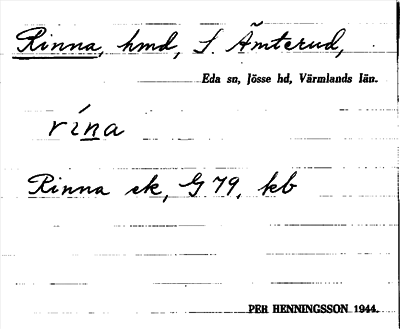 Rinna, hmd, S. Ämterud,
Eda sn, Jösse hd, Värmlands län.
rína
Rinna ek, G 79, kb
PER HENNINGSSON 1944.